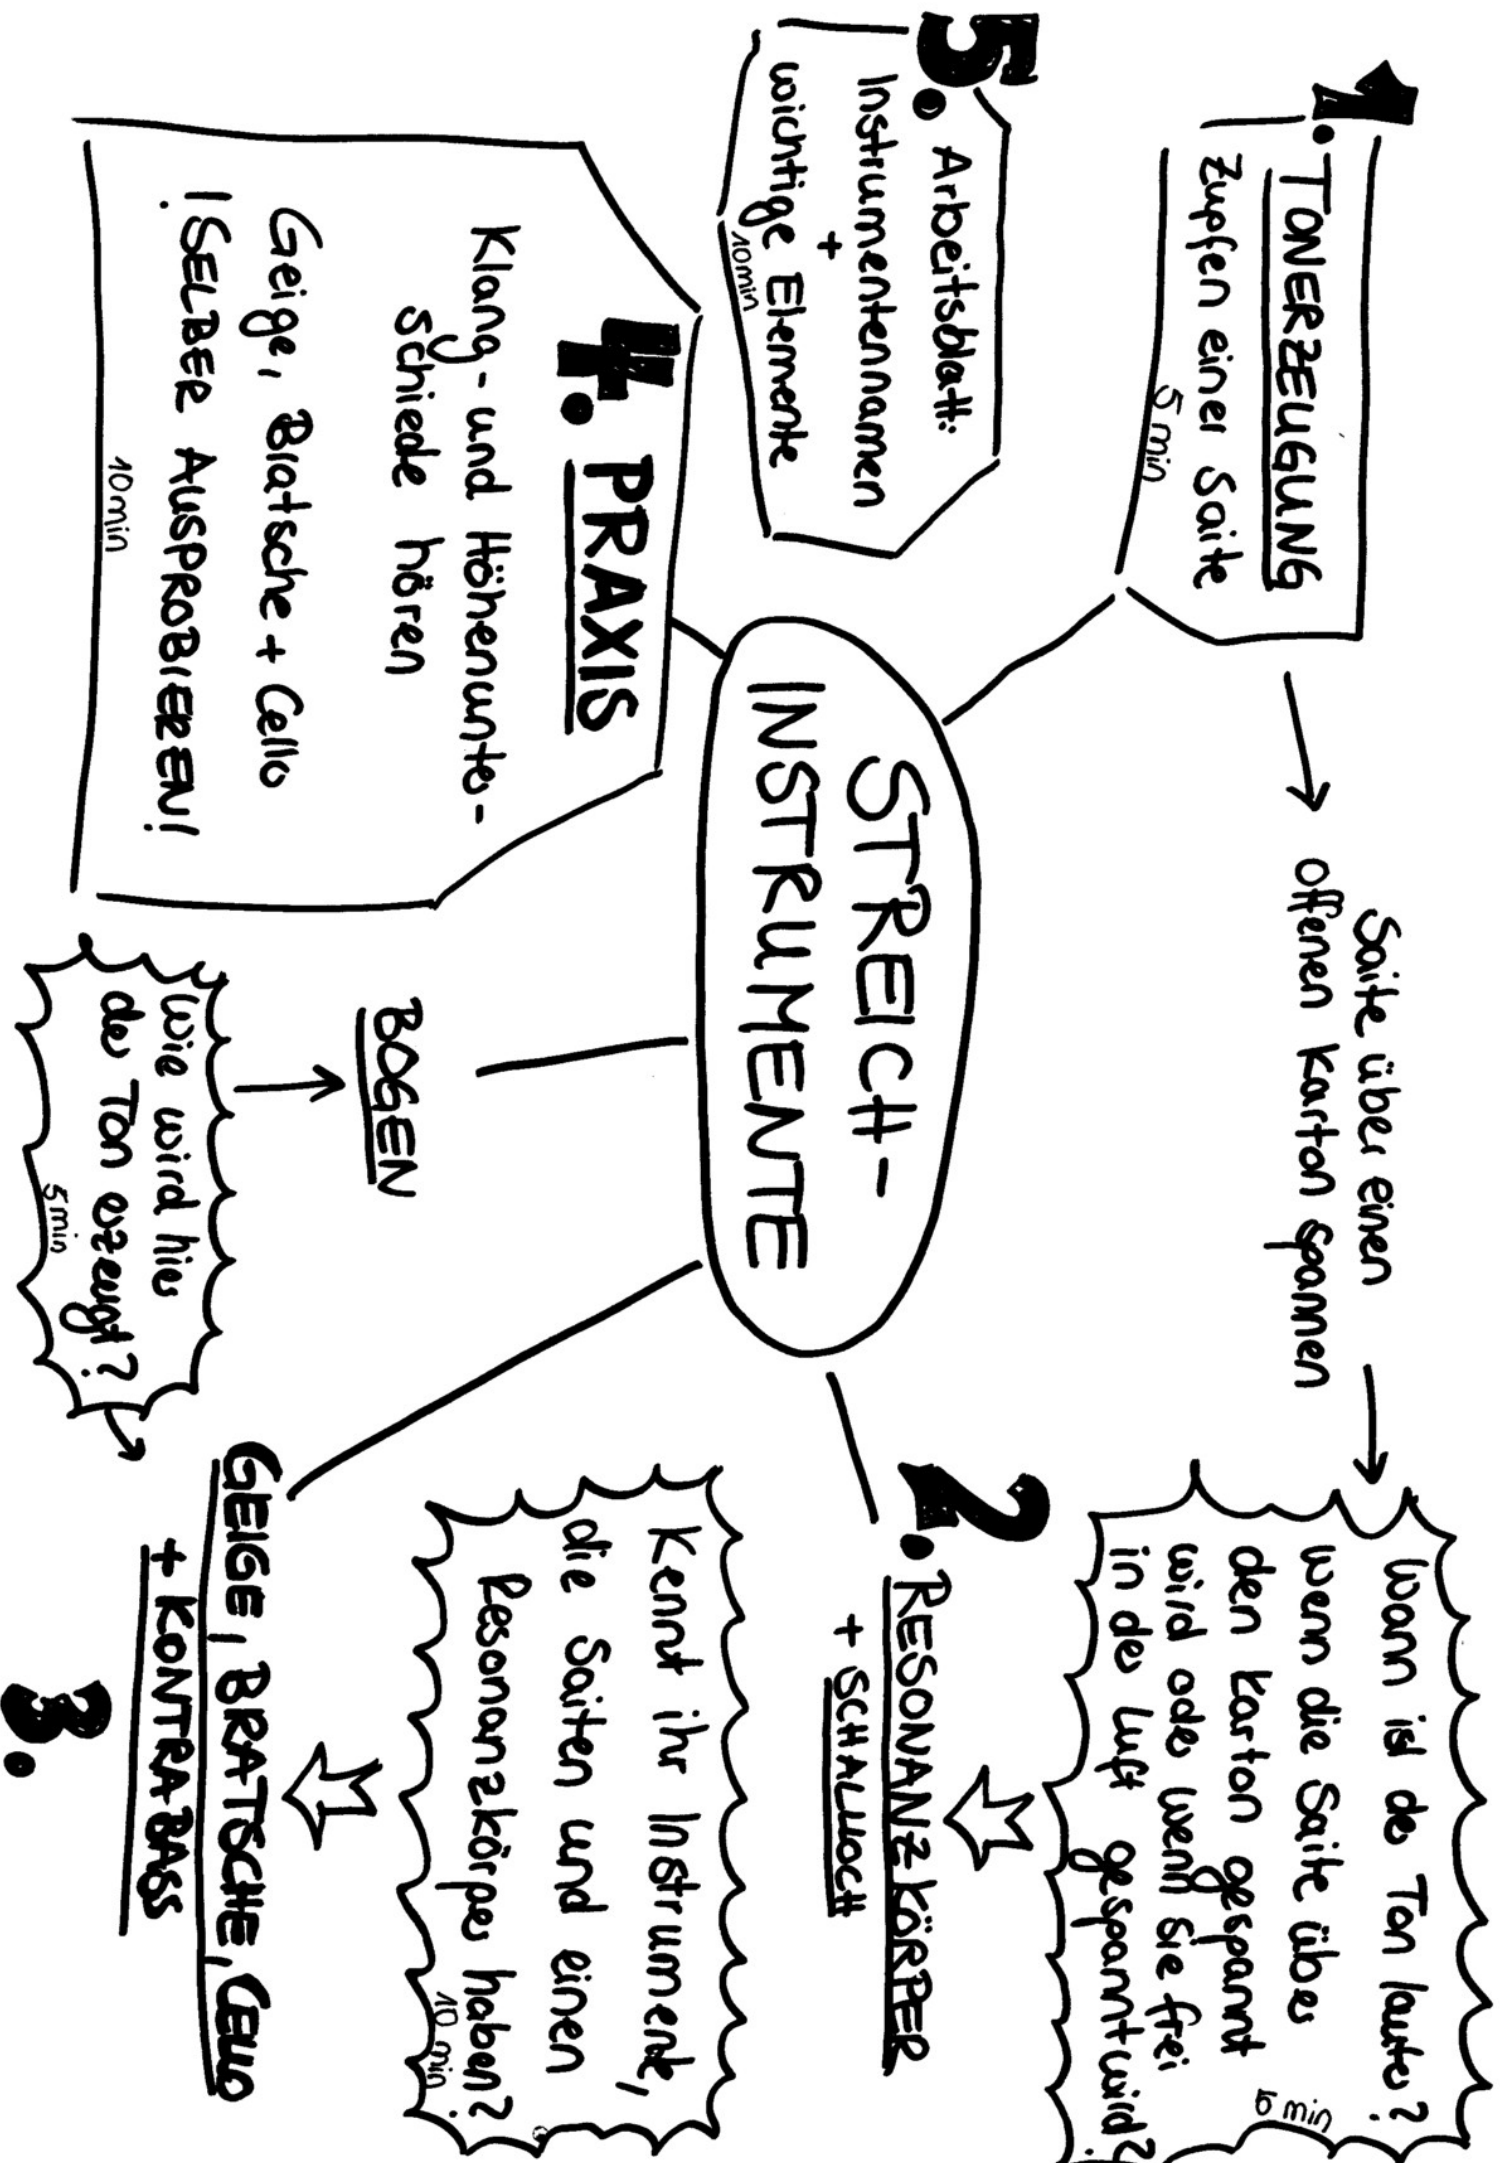 STREICH-
INSTRUMENTE
1. TONERZEUGUNG
Zupfen einer Saite
5 min
Saite über einen
offenen Karton spannen
Wann ist der Ton lauter?
Wenn die Saite über
den Karton gespannt
wird oder wenn sie frei
in der Luft gespannt wird?
5 min
2. RESONANZKÖRPER
+ SCHALLLOCH
Kennt ihr Instrumente,
die Saiten und einen
Resonanzkörper haben?
10 min
GEIGE, BRATSCHE, CELLO
+ KONTRABASS
3.
BOGEN
Wie wird hier
der Ton erzeugt?
5 min
4. PRAXIS
Klang- und Höhenunter-
schiede hören
Geige, Bratsche + Cello
!SELBER AUSPROBIEREN!
10 min
5. Arbeitsblatt:
Instrumentennamen
+
wichtige Elemente
10 min